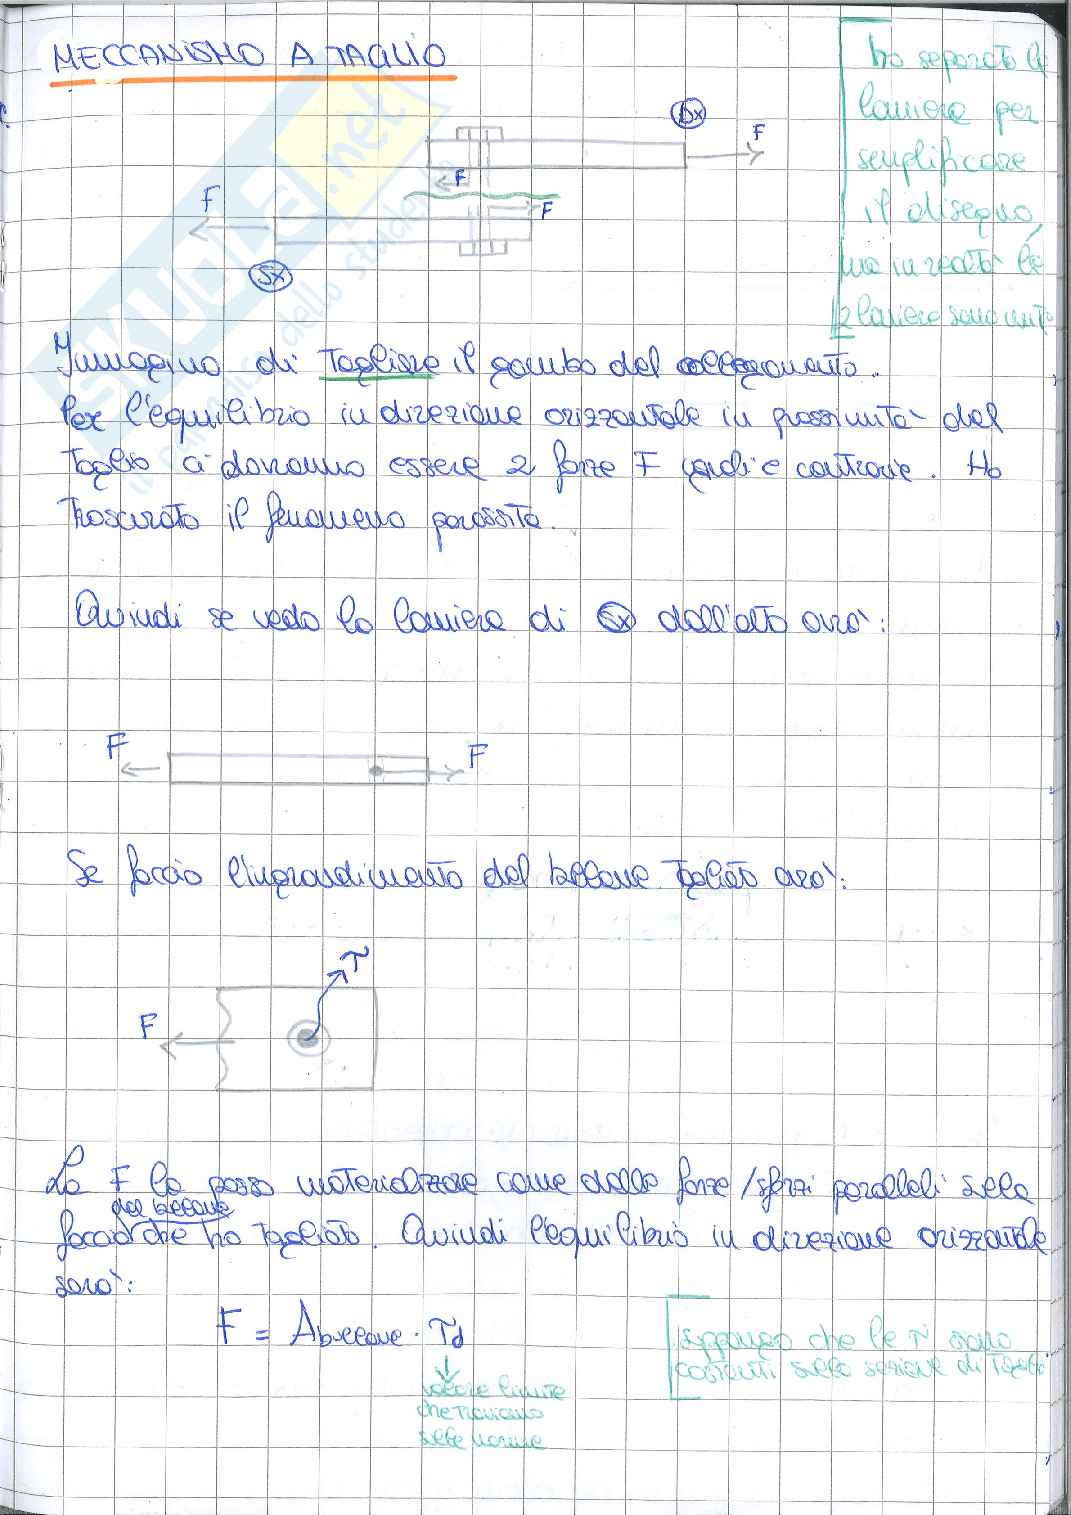 MECCANISMO A TAGLIO
ho separato le
lamiere per
semplificare
il disegno,
ma in realtà le
2 lamiere sono unite
Dx
F
F
F
F
Sx
Immagino di Tagliare il gambo del collegamento.
Per l'equilibrio in direzione orizzontale in prossimità del
Taglio ci dovranno essere 2 forze F uguali e contrarie. Ho
Trascurato il fenomeno parassita.
Quindi se vedo la lamiera di Sx dall'alto avrò:
F
F
Se faccio l'ingrandimento del bullone Tagliato avrò:
τ
F
La F la posso materializzare come delle forze/sforzi paralleli sulla
del bullone
faccia che ho Tagliato. Quindi l'equilibrio in direzione orizzontale
sarà:
F = Abullone · τd
suppongo che le τ siano
costanti sulla sezione di Taglio
valore limite
che troviamo
sulle norme
SKUOLA.net
il paradiso dello studente